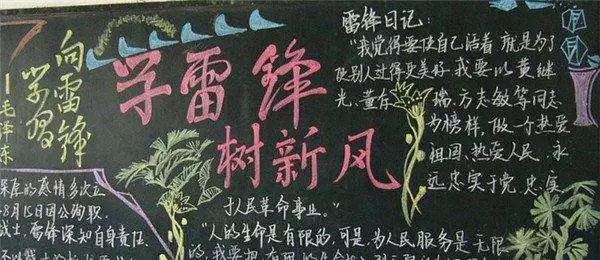 向雷锋
学习
—毛泽东
深厚的感情多次立
8月15日因公殉职
战士,雷锋深知自身责任
学雷锋
树新风
雷锋日记:
"我觉得要使自己活着 就是为了
使别人过得更美好 我要以黄继
光、董存瑞、方志敏等同志
为榜样,做一个热爱
祖国、热爱人民、永
远忠实于党 忠实
于人民革命事业。"
"人的生命是有限的,可是,为人民服务是无限
的,我要把有限的